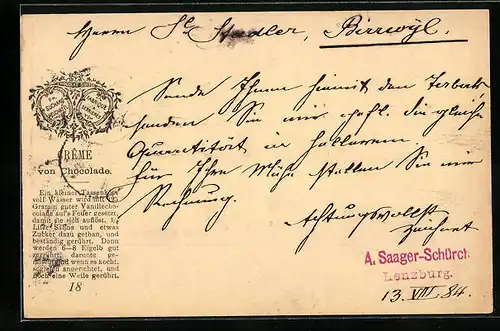 Herrn St. Stadler, Birrwyl.
Sende Ihnen hiemit den
senden Sie mir gefl. die gleiche
Quantität in hellerem.
für Ihre Mühe stellen Sie mir
Rechnung.
Achtungsvollst
zeichnet
A. Saager-Schürch
Lenzburg.
13. VII. 84.
CRÈME
von Chocolade.
Ein kleiner Tassenkopf
voll Wasser wird mit
Gramm guter Vanillecho-
colade aufs Feuer gesetzt,
damit sie sich auflöst.
Liter Sahne und etwas
Zucker dazu gethan, und
beständig gerührt. Dann
werden 6–8 Eigelb gut
gerührt, darunte ge-
und wenn es kocht,
angerichtet, und
noch eine Weile gerührt.
18